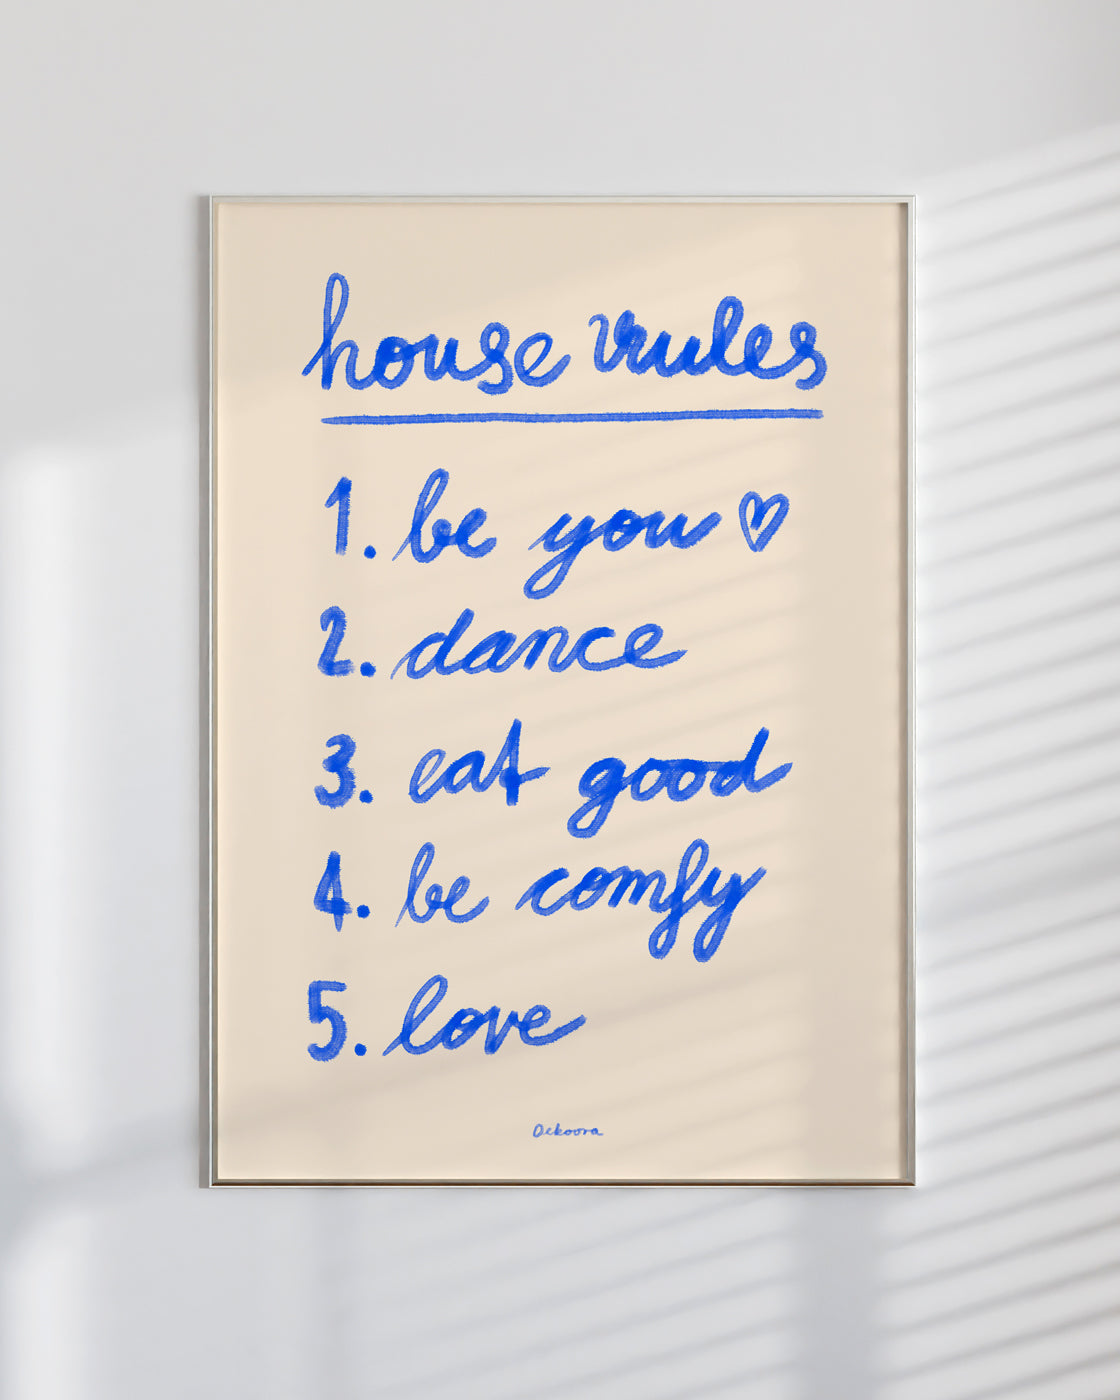 house rules
1. be you ♡
2. dance
3. eat good
4. be comfy
5. love
Dekoora